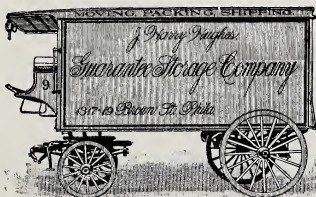 MOVING, PACKING, SHIPPING
J. Harry Hughes
Guarantee Storage Company
9
1317-19 Brown St. Phila.